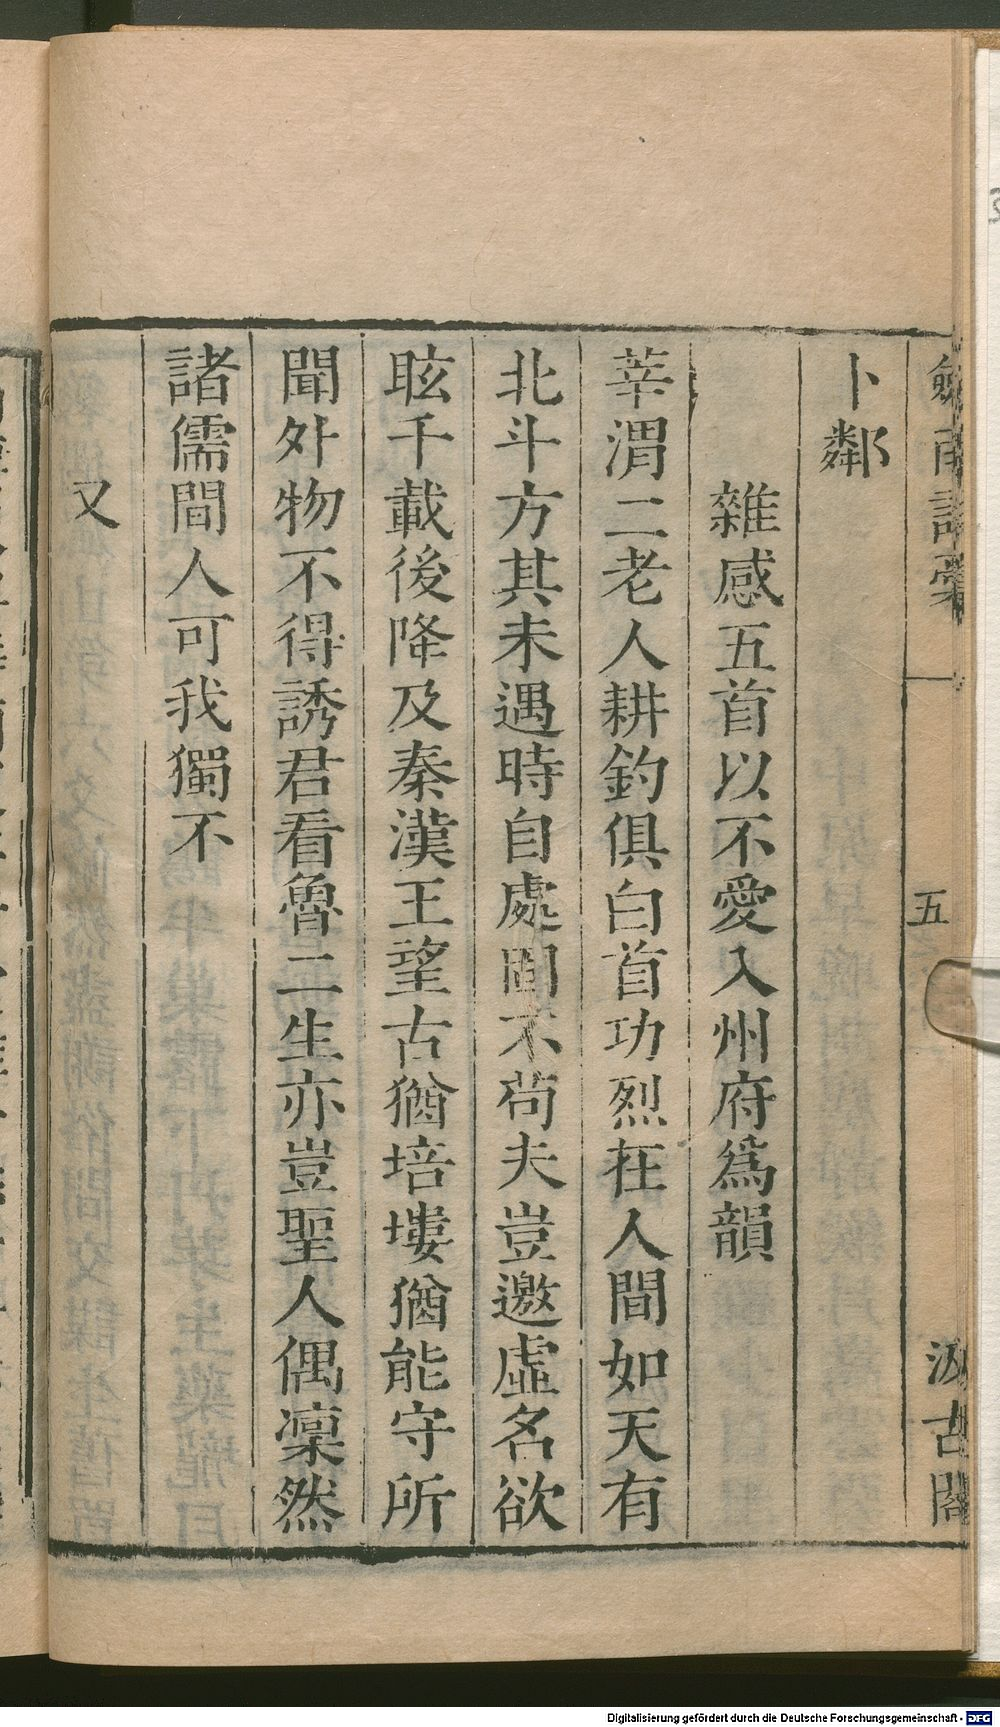 劍南詩稾 五 汲古閣
卜鄰
雜感五首以不愛入州府爲韻
莘渭二老人耕釣俱白首功烈在人間如天有
北斗方其未遇時自處固不茍夫豈邀虛名欲
眩千載後降及秦漢王望古猶培塿猶能守所
聞外物不得誘君看魯二生亦豈聖人偶凜然
諸儒間人可我獨不
又
Digitalisierung gefördert durch die Deutsche Forschungsgemeinschaft - DFG